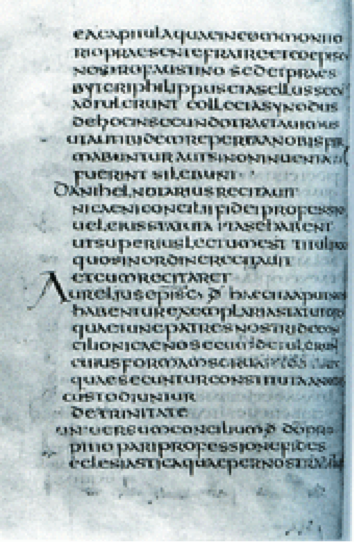 eacapitulaquaeincommonito
riopraesentefratreetcoepisc
nostrofaustino sedetpraes
byteriphilippusetasellussecu
adtulerunt collectasynodus
dehocinsecundotractauimus
mabunturautsinoninuenta
fuerint silebunt
danihel notariusrecitauit
nicaeniconciliifideiprofessio
uel eiusstatuta itasehabent
utsuperius lectumest
quosinordinerecitauit
etcumrecitaret
Aurelius episc d haecitaapudnos
habenturexemplariastatutorum
quaetuncpatresnostridecon
cilionicaenosecumdetulerun
cuiusformamseruantes
quaesecunturconstituta
custodiuntur
detrinitate
uniuersumconcilium d dopro
pitio pariprofessionefides
eclesiasticaquaepernostra